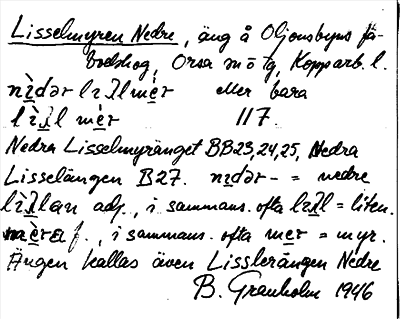 Lisselmyren Nedre, äng å Oljonsbyns fä-
bodskog, Orsa m ō tg, Kopparb. l.
nìdər lɪʎlmèr eller bara
lìʎl mèr 117.
Nedra Lisselmyränget BB23,24,25, Nedra
Lisselängen B27. nɪdər- = nedre
lìʎlan adj., i sammans. ofta lɪʎl = liten.
mèra f., i sammans. ofta mer = myr.
Ängen kallas även Lisslerängen Nedre
B. Granholm 1946